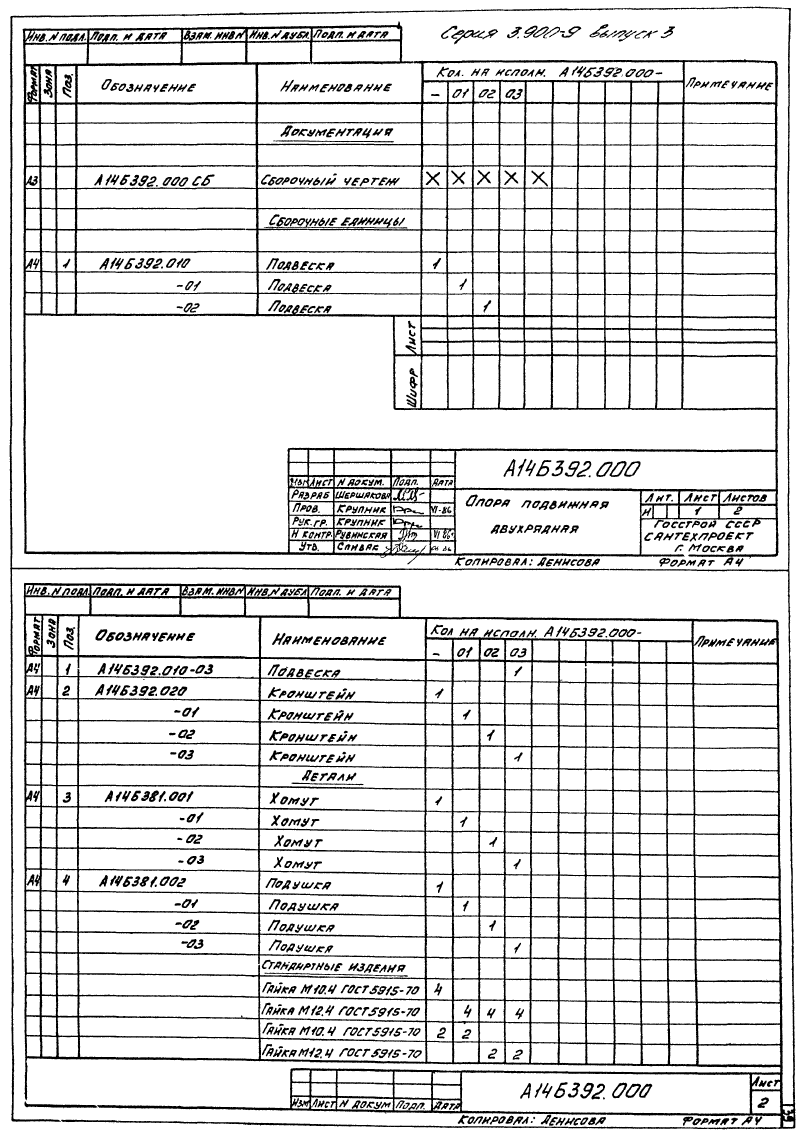 Серия 3.900-9 выпуск 3
Инв. N подл. Подп. и дата Взам. инв N Инв. N дубл Подп. и дата
Формат Зона Поз. Обозначение Наименование Кол. на исполн. А14Б392.000- Примечание
- 01 02 03
Документация
А3 А14Б392.000 СБ Сборочный чертеж X X X X X
Сборочные единицы
А4 1 А14Б392.010 Подвеска 1
-01 Подвеска 1
-02 Подвеска 1
Лист
Шифр
А14Б392.000
Изм Лист N докум. Подп. Дата
Разраб Шершакова
Пров. Крупник VI-86
Рук. гр. Крупник
Н контр. Рубинская VI 86
Утв. Спивак
Опора подвижная
двухрядная
Лит. Лист Листов
И 1 2
Госстрой СССР
Сантехпроект
г. Москва
Копировал: Денисова Формат А4
Инв. N подл Подп. и дата Взам. инв N Инв. N дубл Подп. и дата
Формат Зона Поз. Обозначение Наименование Кол на исполн. А14Б392.000- Примечание
- 01 02 03
А4 1 А14Б392.010-03 Подвеска 1
А4 2 А14Б392.020 Кронштейн 1
-01 Кронштейн 1
-02 Кронштейн 1
-03 Кронштейн 1
Детали
А4 3 А14Б381.001 Хомут 1
-01 Хомут 1
-02 Хомут 1
-03 Хомут 1
А4 4 А14Б381.002 Подушка 1
-01 Подушка 1
-02 Подушка 1
-03 Подушка 1
Стандартные изделия
Гайка М10.4 ГОСТ 5915-70 4
Гайка М12.4 ГОСТ 5915-70 4 4 4
Гайка М10.4 ГОСТ 5915-70 2 2
Гайка М12.4 ГОСТ 5915-70 2 2
Изм Лист N докум Подп. Дата
А14Б392.000
Лист
2
Копировал: Денисова Формат А4